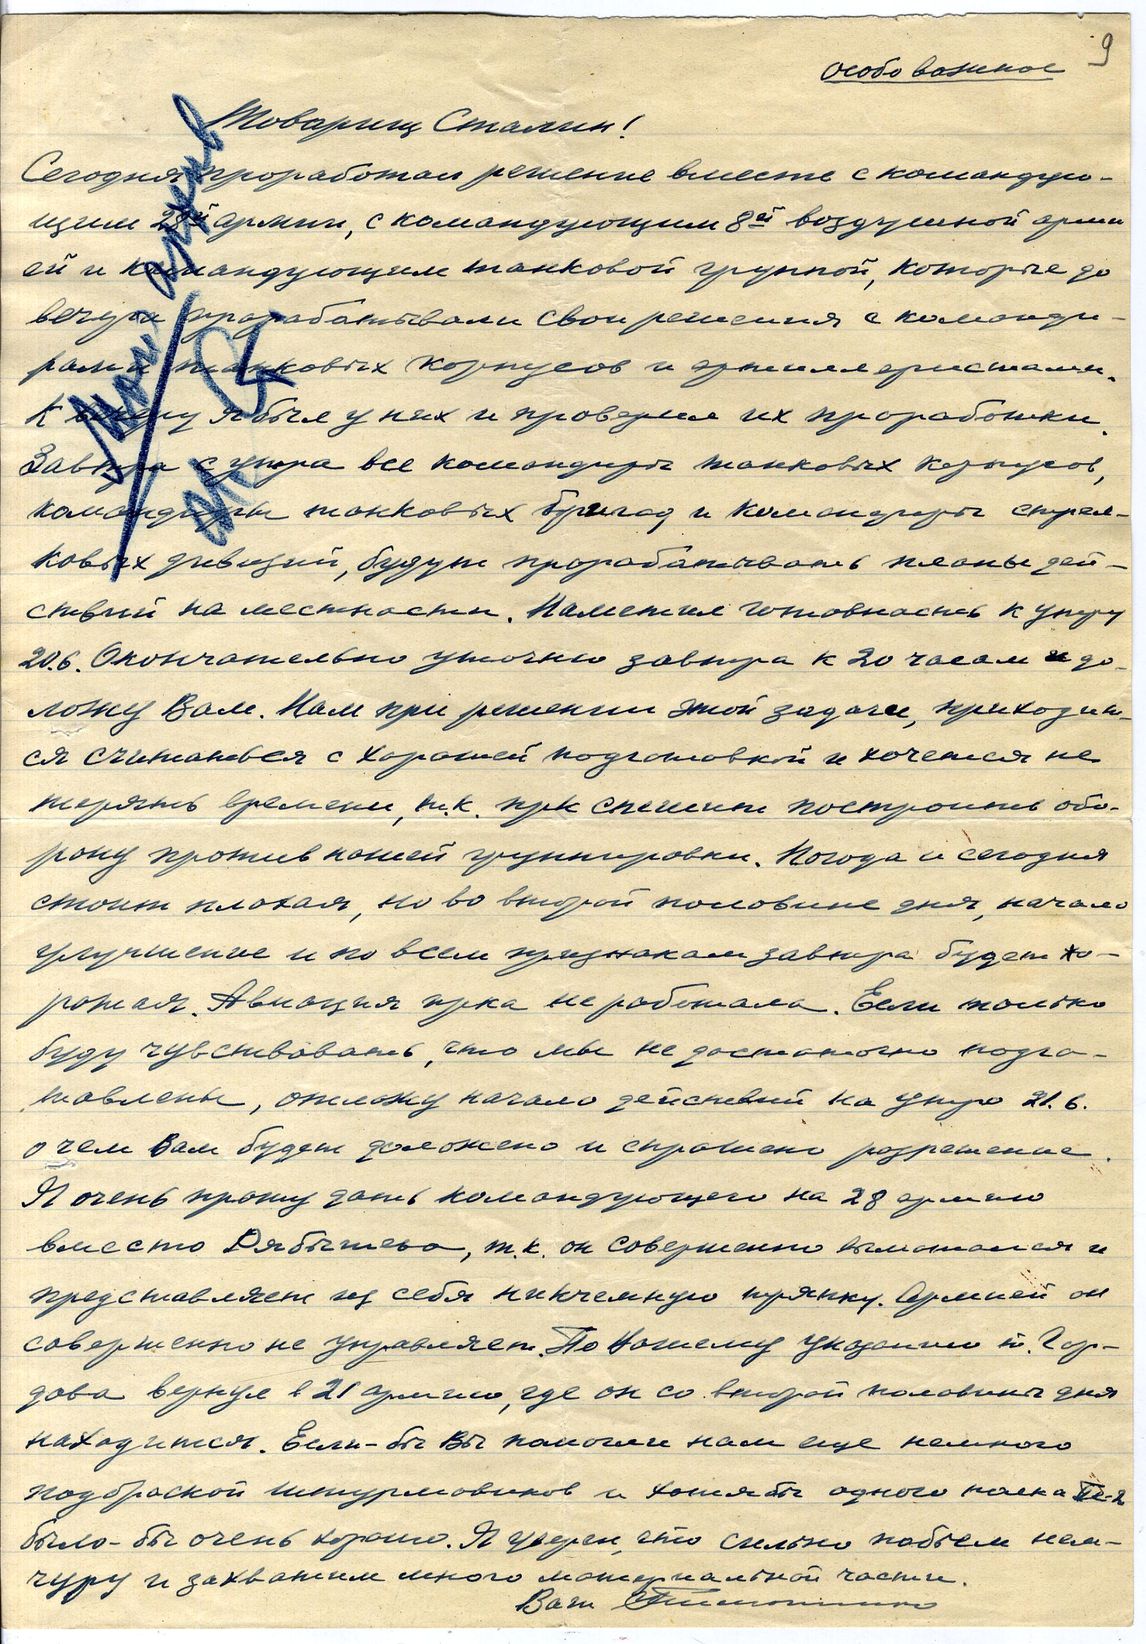 9
Особо важное
Товарищ Сталин!
Сегодня проработал решение вместе с командую-
щим 28й армии, с командующим 8ей воздушной арми
ей и командующим танковой группой, которые до
вечера прорабатывали свои решения с команди-
рами танковых корпусов и артиллеристами.
К вечеру я был у них и проверил их проработки.
Завтра с утра все командиры танковых корпусов,
командиры танковых бригад и командиры стрел-
ковых дивизий, будут прорабатывать планы дей-
ствий на местности. Наметил готовность к утру
20.6. Окончательно уточню завтра к 20 часам и до-
ложу Вам. Нам при решении этой задачи, приходит-
ся считаться с хорошей подготовкой и хочется не
терять времени, т.к. пр-к спешит построить обо-
рону против нашей группировки. Погода и сегодня
стоит плохая, но во второй половине дня, начало
улучшение и по всем признакам завтра будет хо-
рошая. Авиация пр-ка не работала. Если только
буду чувствовать, что мы не достаточно подго-
товлены, отложу начало действий на утро 21.6.
о чем Вам будет доложено и спрошено разрешение.
Я очень прошу дать командующего на 28 армию
вместо Рябышева, т.к. он совершенно вымотался и
представляет из себя никчемную тряпку. Армией он
совершенно не управляет. По Вашему указанию т. Гор-
дова вернул в 21 армию, где он со второй половины дня
находится. Если-бы Вы помогли нам еще немного
подброской штурмовиков и хотя бы одного полка Пе-2
было-бы очень хорошо. Я уверен, что сильно побьем нем-
чуру и захватим много материальной части.
Ваш Тимошенко
Мой архив